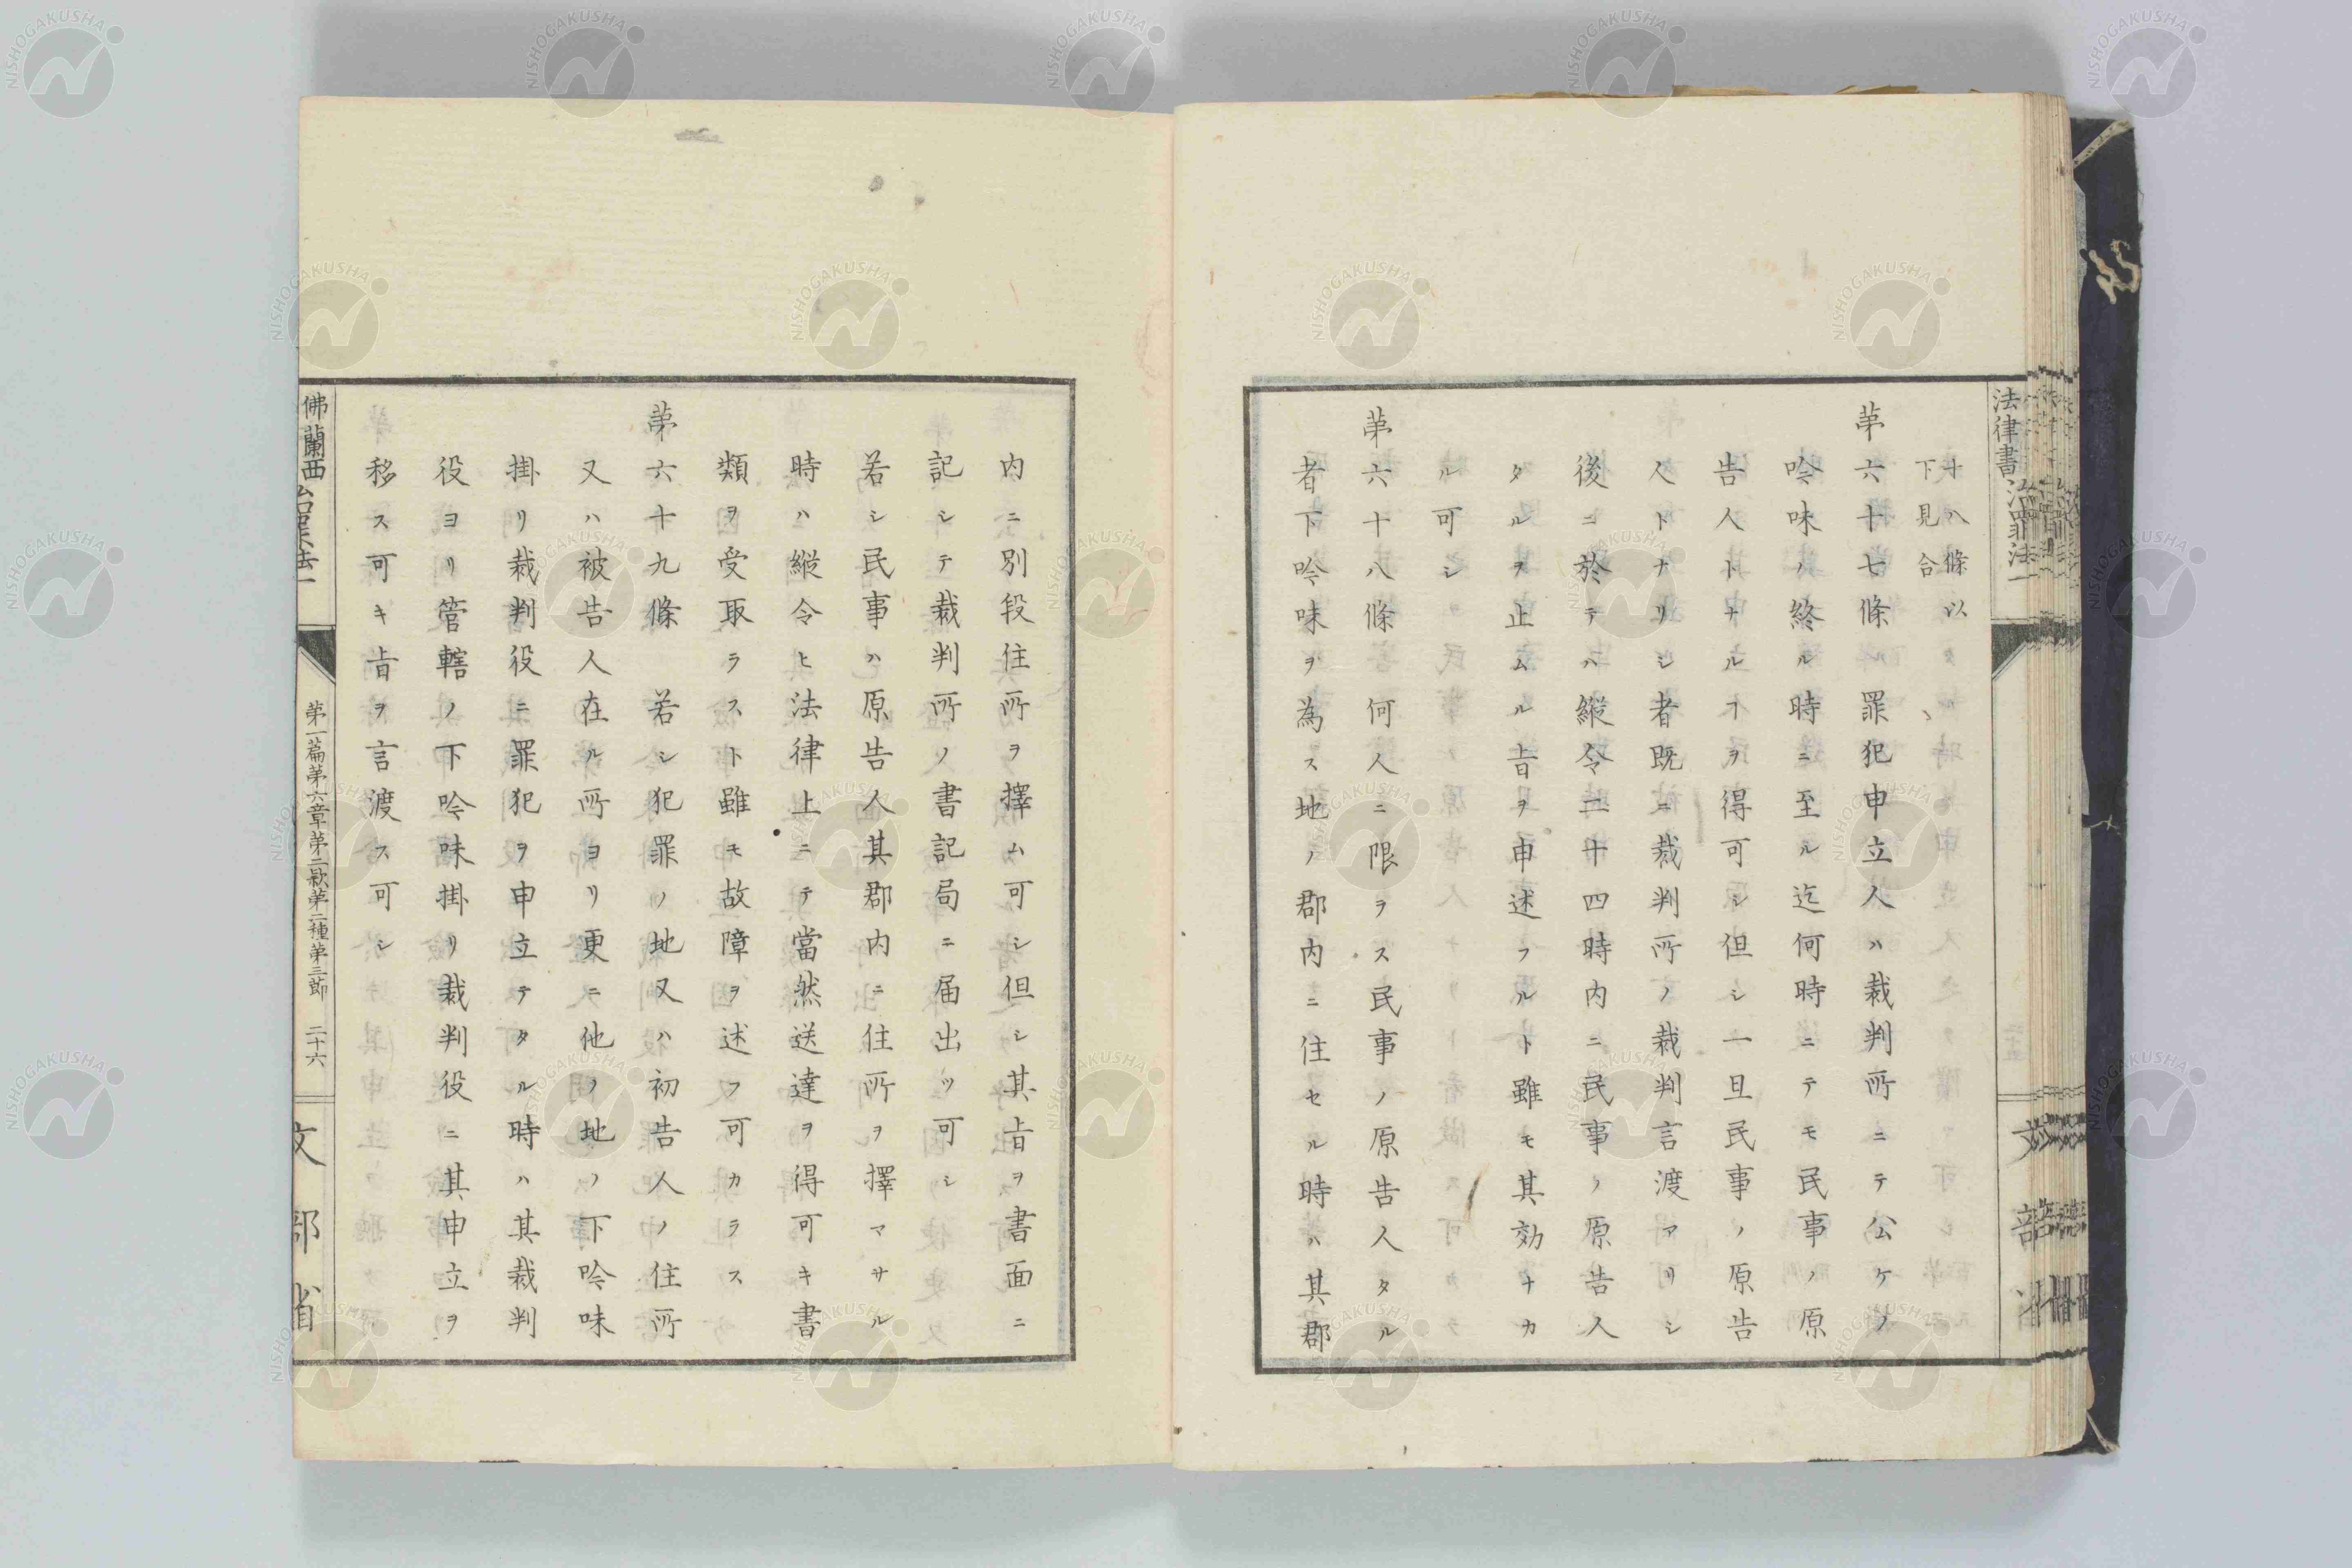 法律書 治罪法一
十八條以
下見合
第六十七條 罪犯申立人ハ裁判所ニテ公ケノ
吟味ノ終ル時ニ至ル迄何時ニテモ民事ノ原
告人トナルヿヲ得可シ但シ一旦民事ノ原告
人トナリシ者既ニ裁判所ノ裁判言渡アリシ
後ニ於テハ縦令二十四時内ニ民事ノ原告人
タルヲ止ムル旨ヲ申述フルト雖モ其効ナカ
ル可シ
第六十八條 何人ニ限ラス民事ノ原告人タル
者下吟味ヲ為ス地ノ郡内ニ住セル時ハ其郡
内ニ別段住所ヲ擇ム可シ但シ其旨ヲ書面ニ
記シテ裁判所ノ書記局ニ届出ツ可シ
若シ民事ハ原告人其郡内ニ住所ヲ擇マサル
時ハ縦令ヒ法律上ニテ當然送達ヲ得可キ書
類ヲ受取ラスト雖モ故障ヲ述フ可カラス
第六十九條 若シ犯罪ノ地又ハ初告人ノ住所
又ハ被告人在ル所ヨリ更ニ他ノ地ノ下吟味
掛リ裁判役ニ罪犯ヲ申立テタル時ハ其裁判
役ヨリ管轄ノ下吟味掛リ裁判役ニ其申立ヲ
移ス可キ旨ヲ言渡ス可シ
佛蘭西治罪法一
第一篇第六章第二款第二種第三節 二十六
文部省
NISHOGAKUSHA